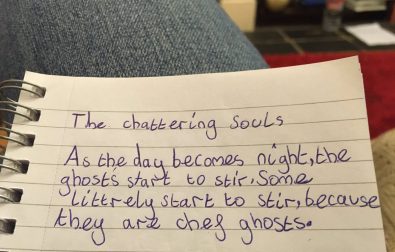 The chattering souls
As the day becomes night, the
ghosts start to stir. Some
littrely start to stir, because
they are chef ghosts.